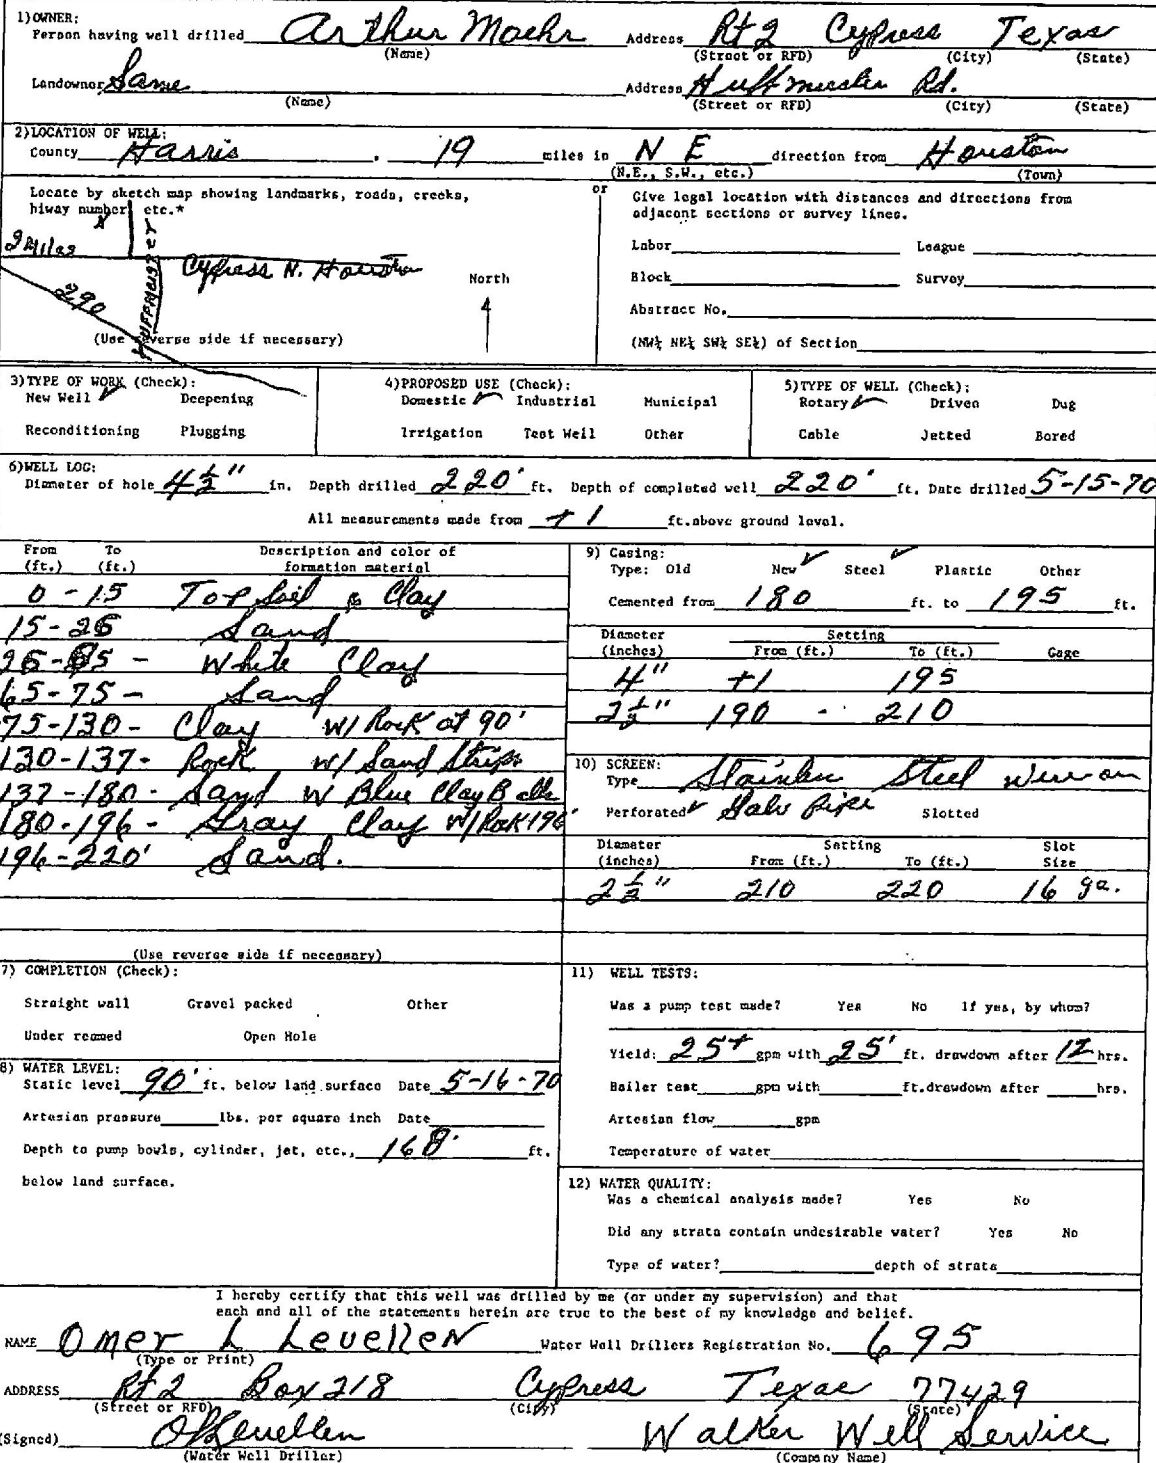 1) OWNER:
Person having well drilled Arthur Moehr Address Rt 2 Cypress Texas
(Name) (Street or RFD) (City) (State)
Landowner Same Address Huffmeister Rd.
(Name) (Street or RFD) (City) (State)
2) LOCATION OF WELL:
County Harris . 19 miles in N E direction from Houston
(N.E., S.W., etc.) (Town)
Locate by sketch map showing landmarks, roads, creeks,
hiway number, etc.*
2 Miles
X
HUFFMEISTER
Cypress N. Houston
290
North
(Use reverse side if necessary)
or
Give legal location with distances and directions from
adjacent sections or survey lines.
Labor League
Block Survey
Abstract No.
(NW¼ NE¼ SW¼ SE¼) of Section
3) TYPE OF WORK (Check):
New Well ✓ Deepening
Reconditioning Plugging
4) PROPOSED USE (Check):
Domestic ✓ Industrial Municipal
Irrigation Test Well Other
5) TYPE OF WELL (Check):
Rotary ✓ Driven Dug
Cable Jetted Bored
6) WELL LOG:
Diameter of hole 4½" in. Depth drilled 220' ft. Depth of completed well 220' ft. Date drilled 5-15-70
All measurements made from +1 ft. above ground level.
From (ft.) To (ft.) Description and color of formation material
0 - 15 Top Soil & Clay
15-26 Sand
26-65 - White Clay
65-75 - Sand
75-130 - Clay w/ Rock at 90'
130-137 - Rock w/ Sand Strips
137-180 - Sand W Blue Clay Balls
180-196 - Gray Clay W/ Rock 196'
196-220' Sand.
(Use reverse side if necessary)
9) Casing:
Type: Old New ✓ Steel ✓ Plastic Other
Cemented from 180 ft. to 195 ft.
Diameter (inches) Setting From (ft.) To (ft.) Gage
4" +1 195
2½" 190 - 210
10) SCREEN:
Type Stainless Steel wire on
Perforated ✓ Galv pipe Slotted
Diameter (inches) Setting From (ft.) To (ft.) Slot Size
2½" 210 220 16 ga.
7) COMPLETION (Check):
Straight wall Gravel packed Other
Under reamed Open Hole
8) WATER LEVEL:
Static level 90' ft. below land surface Date 5-16-70
Artesian pressure lbs. per square inch Date
Depth to pump bowls, cylinder, jet, etc., 168' ft.
below land surface.
11) WELL TESTS:
Was a pump test made? Yes No If yes, by whom?
Yield: 25+ gpm with 25' ft. drawdown after 12 hrs.
Bailer test gpm with ft. drawdown after hrs.
Artesian flow gpm
Temperature of water
12) WATER QUALITY:
Was a chemical analysis made? Yes No
Did any strata contain undesirable water? Yes No
Type of water? depth of strata
I hereby certify that this well was drilled by me (or under my supervision) and that
each and all of the statements herein are true to the best of my knowledge and belief.
NAME Omer L Levellen Water Well Drillers Registration No. 695
(Type or Print)
ADDRESS Rt 2 Box 218 Cypress Texas 77429
(Street or RFD) (City) (State)
(Signed) O L Levellen Walker Well Service
(Water Well Driller) (Company Name)